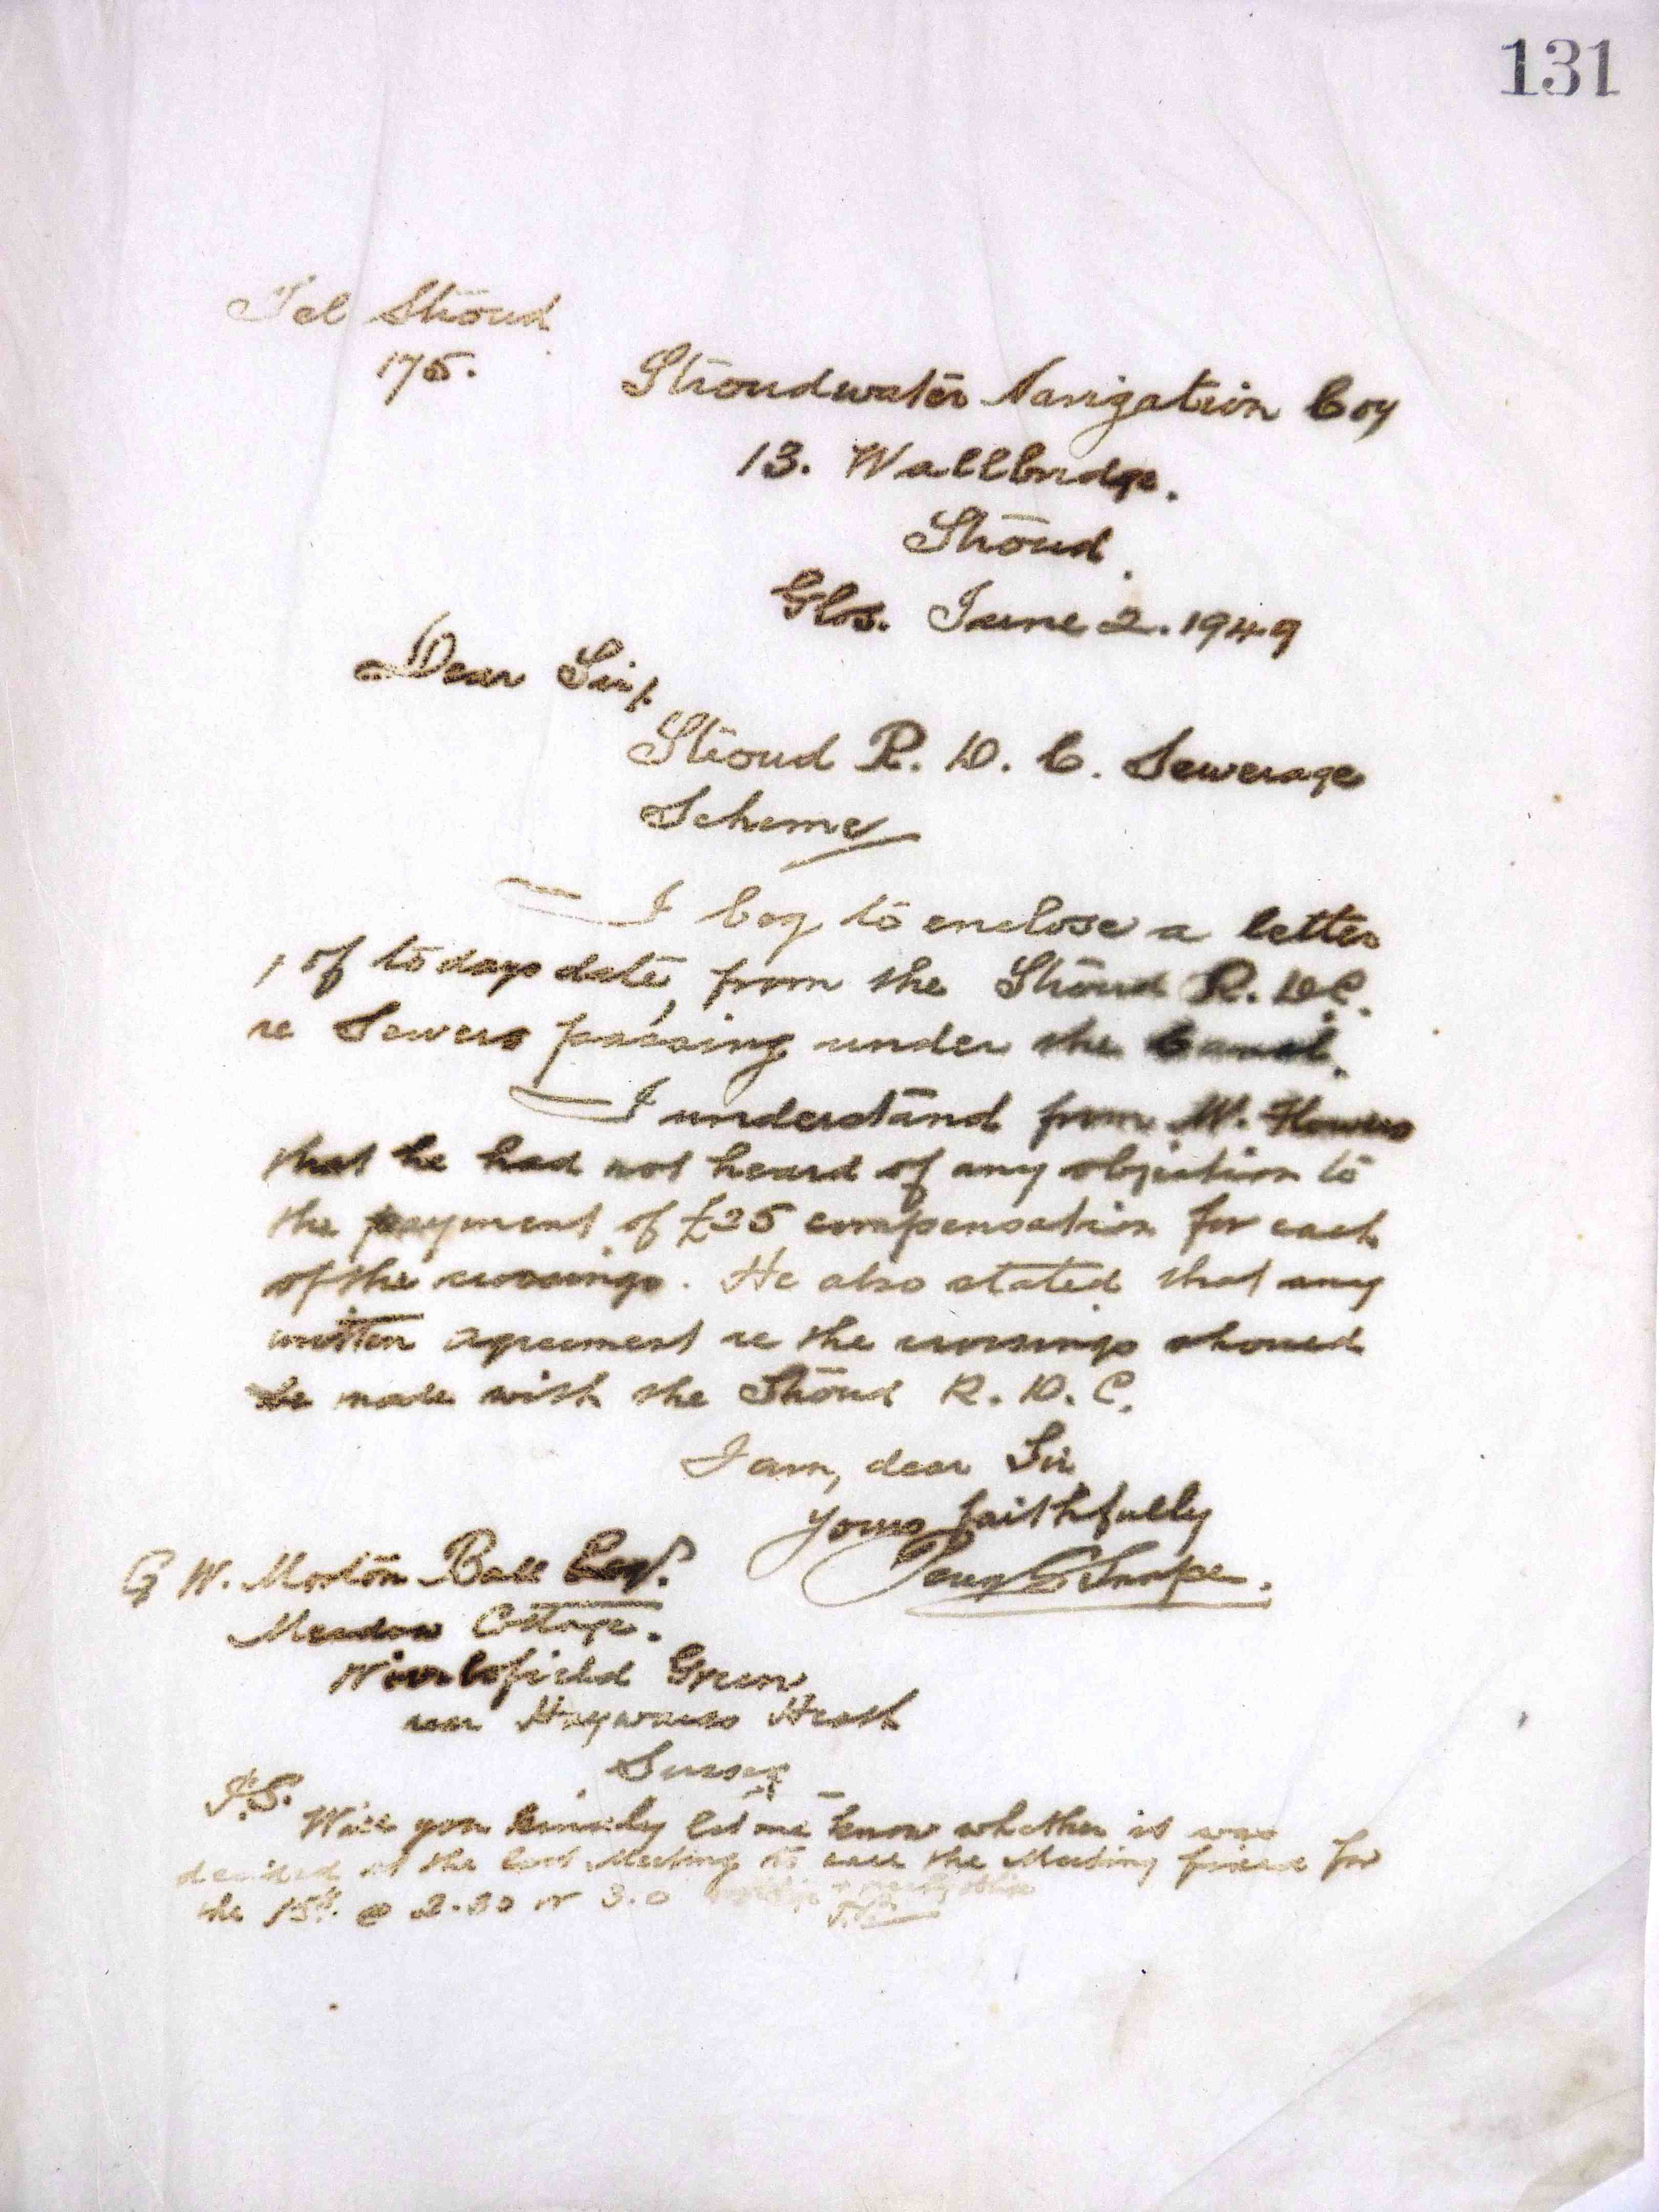 131
Tel Stroud
175.
Stroudwater Navigation Coy
13. Wallbridge.
Stroud.
Glos. June 2. 1949
Dear Sir,
Stroud R. D. C. Sewerage
Scheme
I beg to enclose a letter
, of todays date, from the Stroud R. D C.
re Sewers passing under the Canal.
I understand from Mr. Flowers
that he had not heard of any objection to
the payment of £25 compensation for each
of the crossings. He also stated that any
written agreement re the crossings should
be made with the Stroud R. D. C.
I am, dear Sir
yours faithfully
Snape.
G W. Morton Ball Esqr.
Meadow Cottage.
Wivelsfield Green
near Haywards Heath
Sussex
P.S.
Will you kindly let me know whether it was
decided at the last Meeting to call the Meeting fixed for
the 15th. @ 2.30 or 3.0